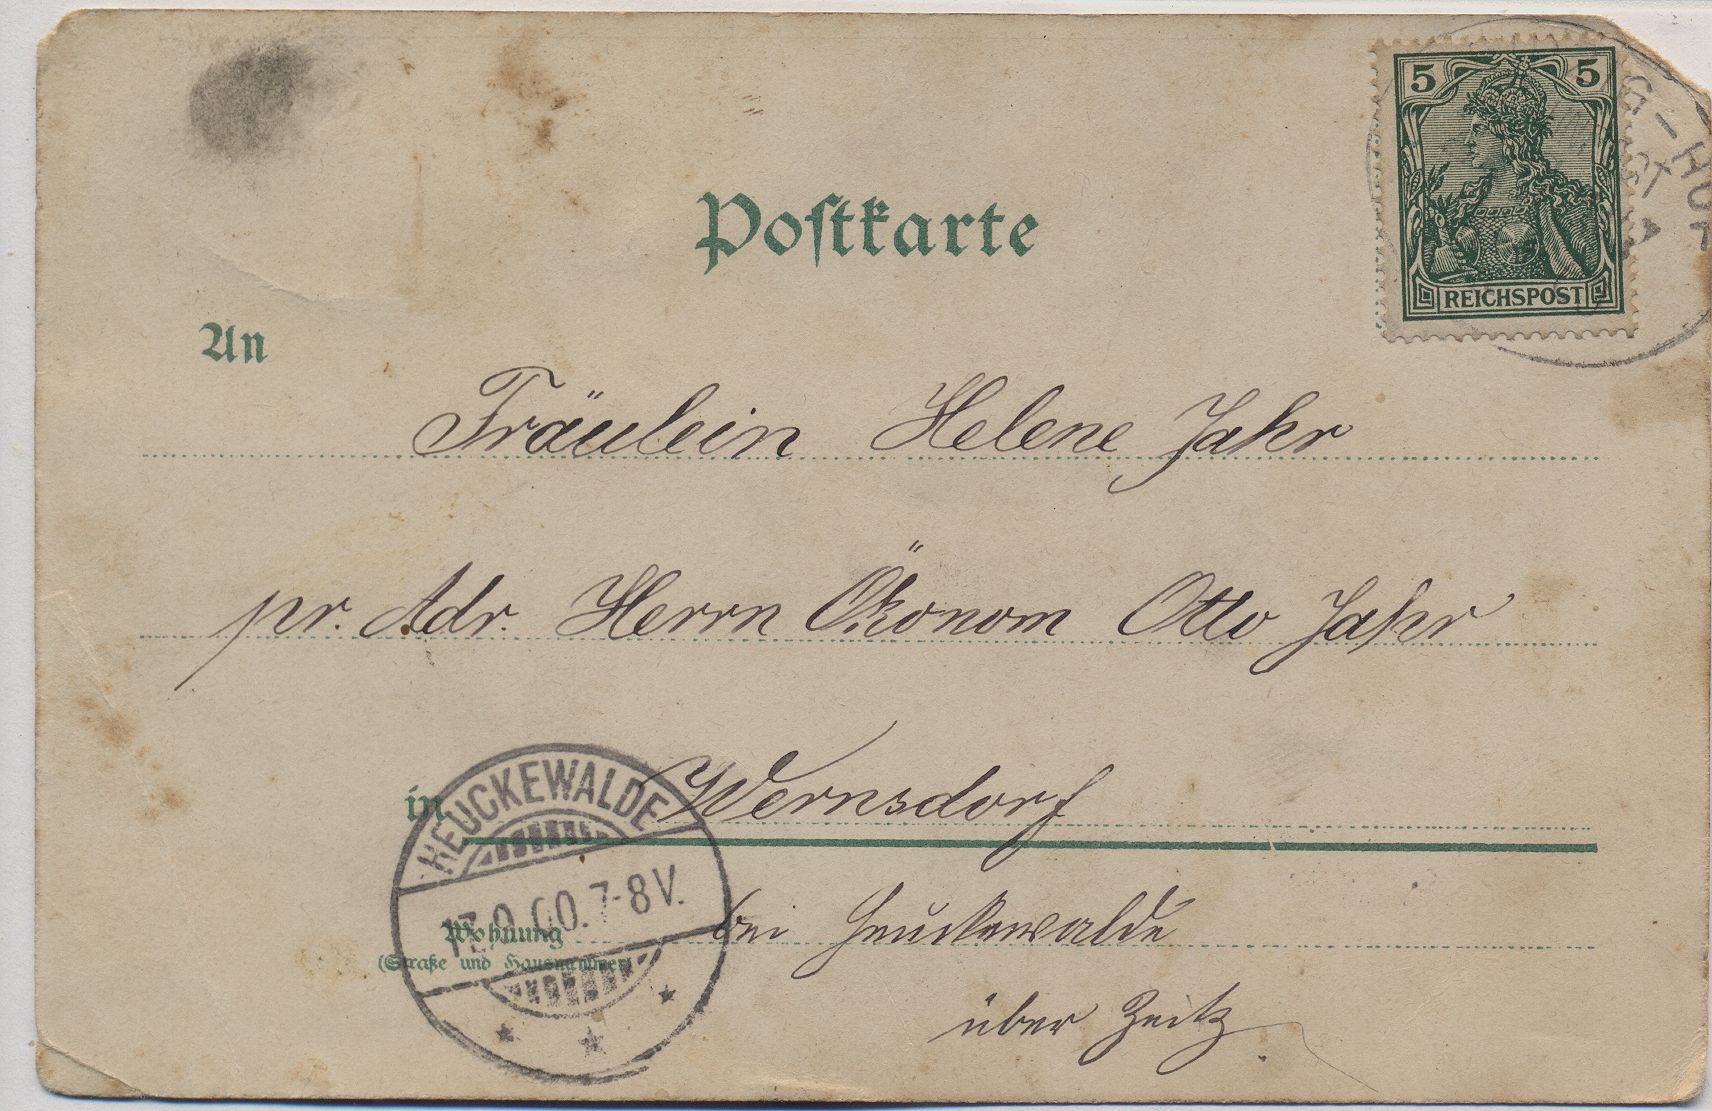 Postkarte
5 5
REICHSPOST
G-HOF
An
Fräulein Helene Jahr
pr. Adr. Herrn Ökonom Otto Jahr
in Wernsdorf
HEUCKEWALDE
7-8V.
Wohnung
(Straße und Hausnummer)
bei Heuckewalde
über Zeitz.